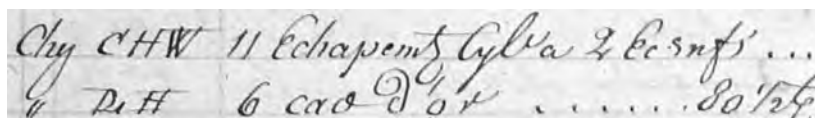 Chy CHW 11 Echapemts Cylr a 2 Ecsnfs ...
" DeH 6 cad d'or ...... 80 1/2